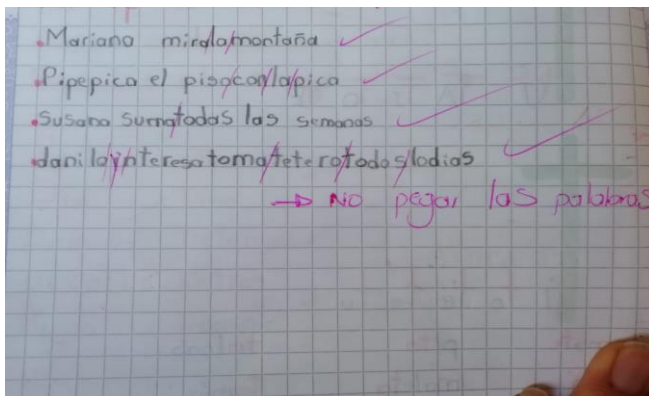 .Mariano miralamontaña
.Pipepica el pisoconlapica
.Susana sumatodas las semanas
.daniloynteresatomateterotodoslodias
→ No pegar las palabras